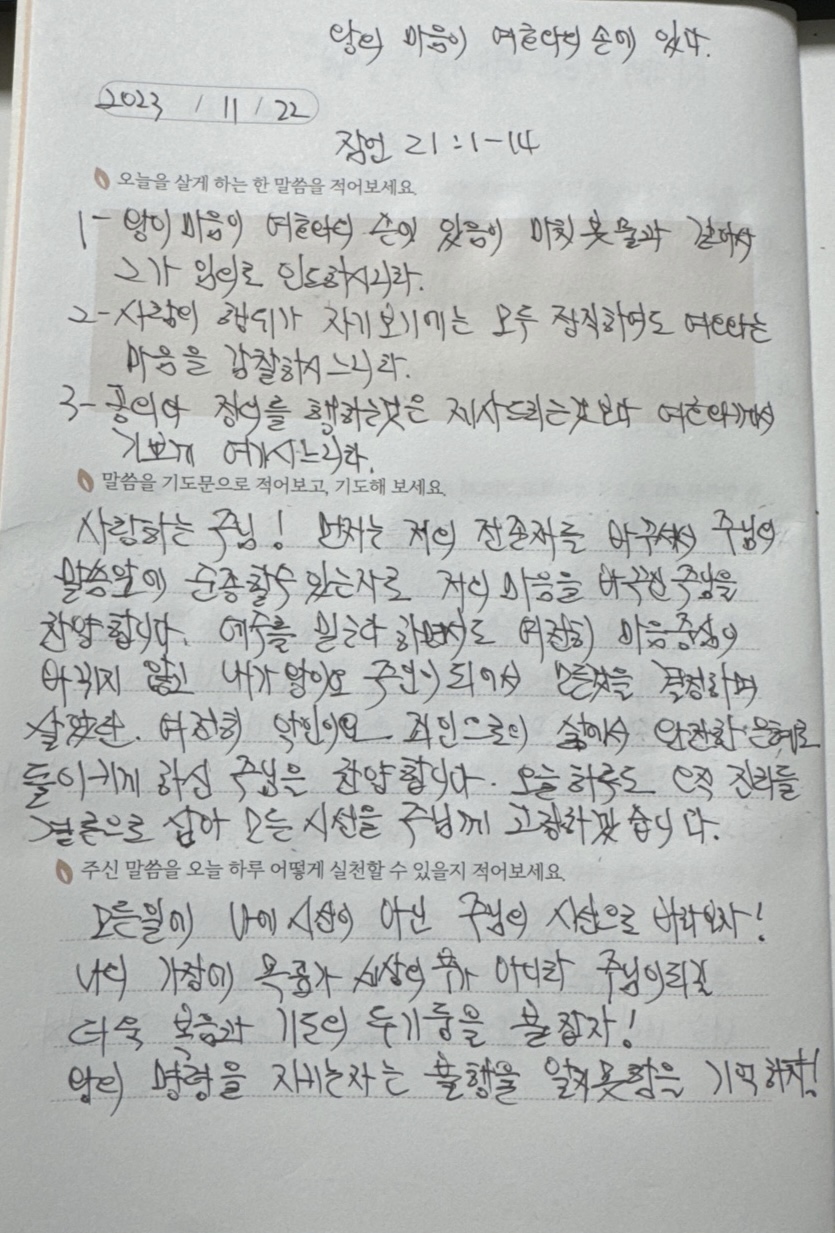 왕의 마음이 여호와의 손에 있다.
2023 / 11 / 22
잠언 21:1-14
오늘을 살게 하는 한 말씀을 적어보세요.
1- 왕의 마음이 여호와의 손에 있음이 마치 봇물과 같아서
그가 임의로 인도하시느니라.
2- 사람의 행위가 자기 보기에는 모두 정직하여도 여호와는
마음을 감찰하시느니라.
3- 공의와 정의를 행하는것은 제사드리는것보다 여호와께서
기쁘게 여기시느니라.
말씀을 기도문으로 적어보고, 기도해 보세요.
사랑하는 주님! 먼저는 저의 전존재를 바꾸셔서 주님의
말씀앞에 순종할수 있는자로 저의 마음을 바꾸신 주님을
찬양합니다. 예수를 믿는다 하면서도 여전히 마음중심이
바뀌지 않고 내가 왕이요 주인이 되어서 모든것을 결정하며
살았던. 여전히 악인이요 죄인으로의 삶에서 완전한 은혜로
돌이키게 하신 주님을 찬양합니다. 오늘 하루도 오직 진리를
결론으로 삼아 모든 시선을 주님께 고정하겠습니다.
주신 말씀을 오늘 하루 어떻게 실천할 수 있을지 적어보세요.
모든일에 나에 시선이 아닌 주님의 시선으로 바라보자!
나의 가정에 목표가 세상의 부가 아니라 주님이되길
더욱 복음과 기도의 두기둥을 붙잡자!
왕의 명령을 지키는자는 불행을 알지못함을 기억하자!